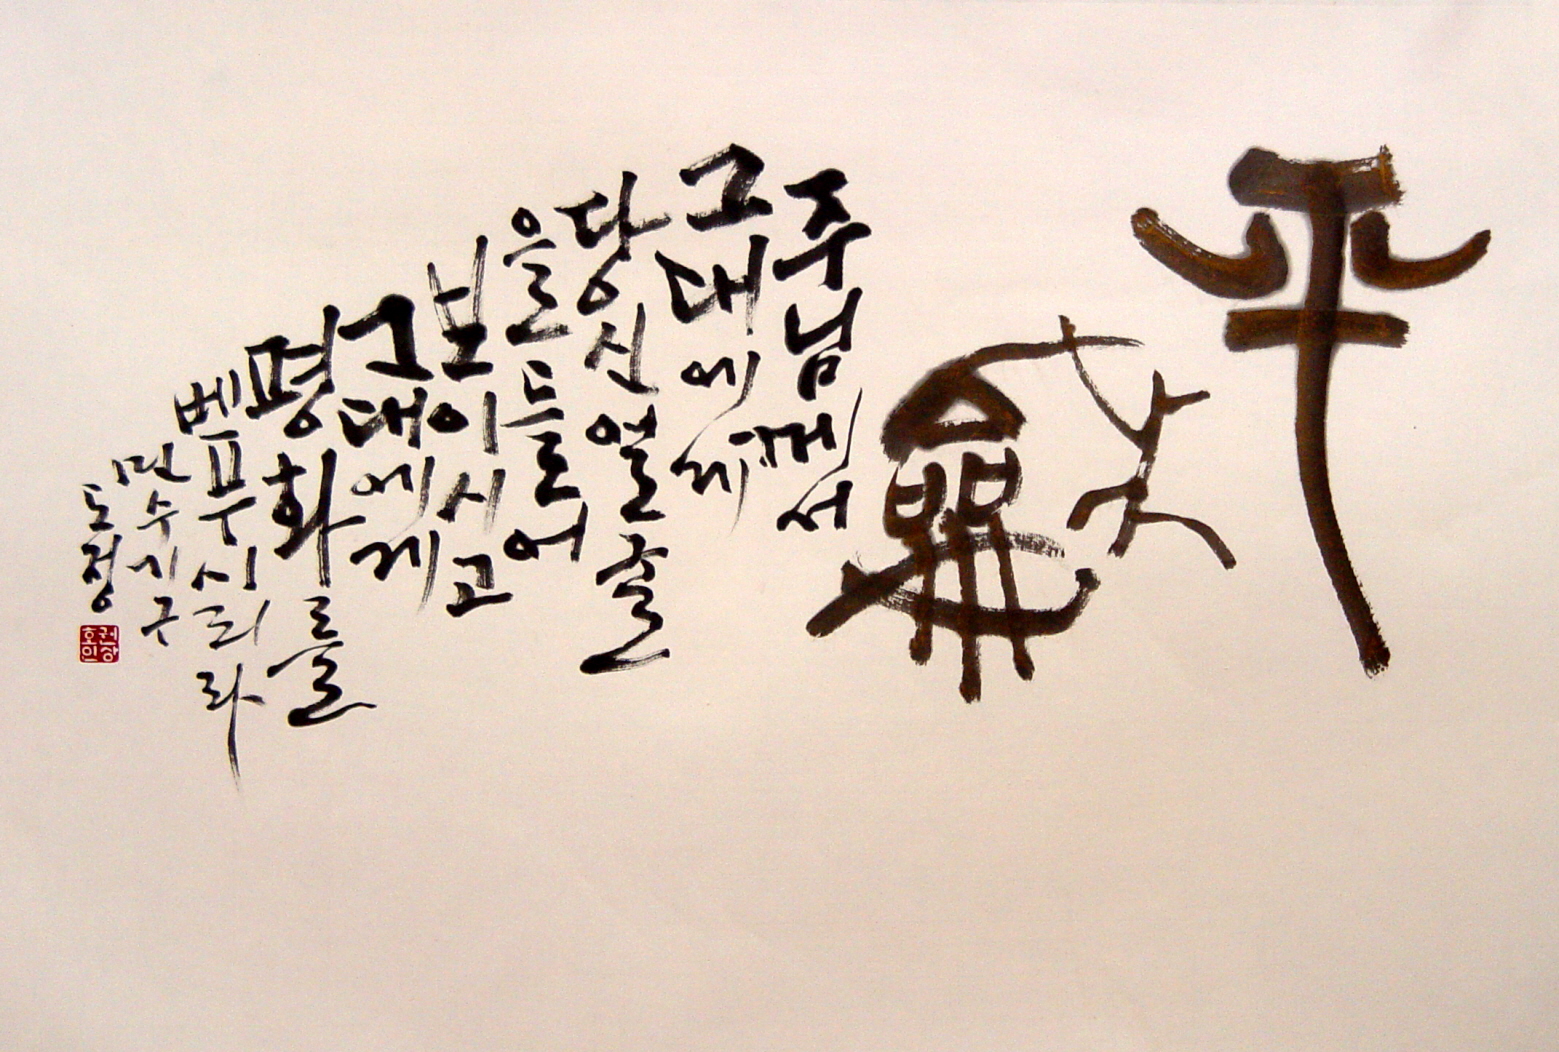 平
龢
주님께서
그대에게
당신얼굴
을들어
보이시고
그대에게
평화를
베푸시리라
민수기구
도정
권상호인